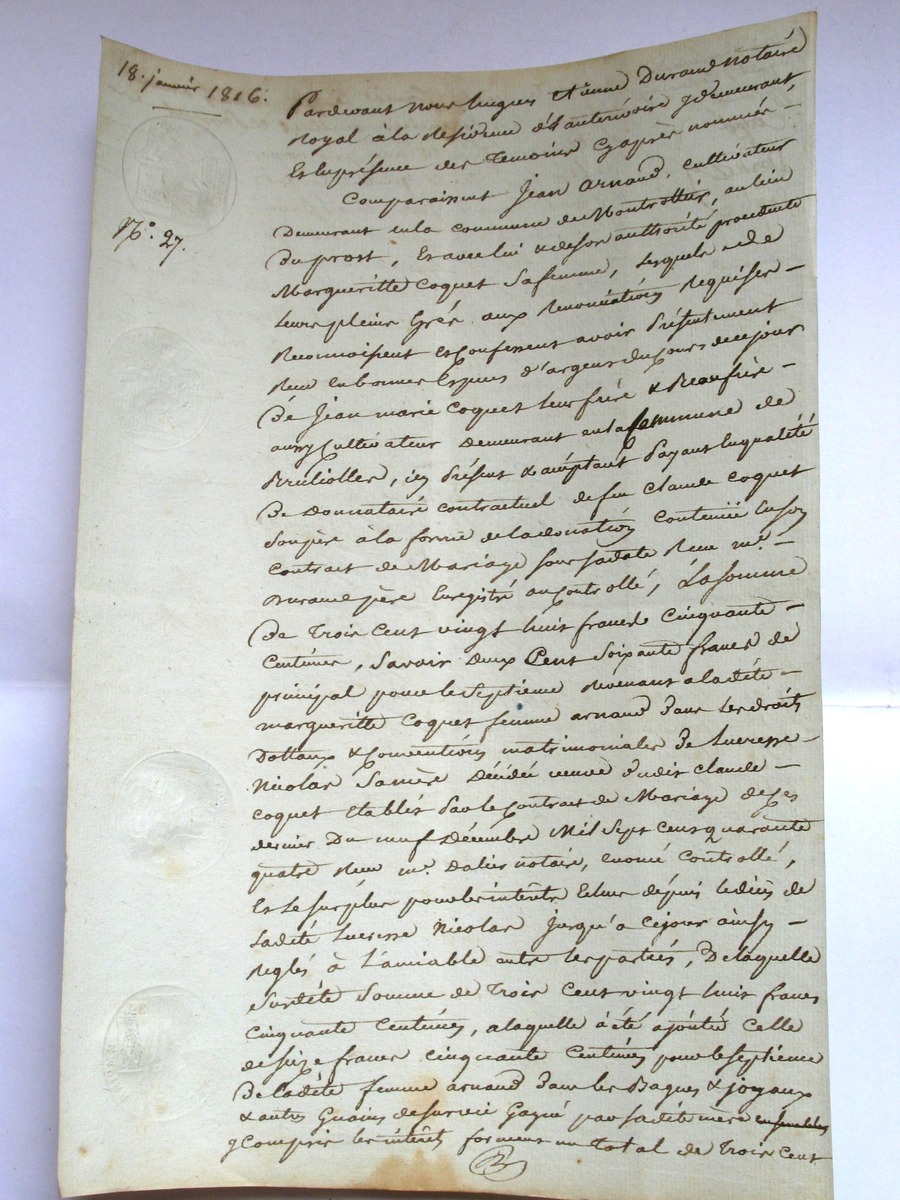 18. janvier 1816.
Pardevant nous hugues Etienne Durand notaire
Royal à la Residence de st antoine y demeurant
Et la présence des Temoins Cyaprès nommés –
N°. 27.
Comparaissent Jean Arnaud, cultivateur
Demeurant en la commune de Montrottier, au lieu
Du prost, Et avec lui & de son authorité procedente
Margueritte Coquet sa femme, lesquels – de
leurs pleins Grés aux Renonciations Requises –
Reconnoissent et Confessent avoir Présentement
Reçu en bonnes Especes d'argent du Cours de ce jour
De Jean marie Coquet leur frère & Beaufrère –
aussy Cultivateur Demeurant en la Commune de
Brulliolles, icy Présent & acceptant Payant En qualité
De Donnataire contractuel de feu Claude Coquet
son père à la forme de la donation Contenüe En son
Contrat de Mariage sous sa date Reçu me. –
Durand père Enregistré au Controlle, La somme
De Trois Cent vingt huit francs Cinquante –
Centimes, savoir deux Cent soixante francs de
principal pour le septieme Revenant a ladite –
margueritte Coquet femme arnaud Dans les droits
Dottaux & Conventions matrimoniales De Lucresse –
Nicolas sa mère Décédée veuve dudit Claude –
Coquet Etablis Par le Contrat de Mariage de Ces
derniers Du neuf Décembre Mil sept cent quarante
quatre Reçu me. Dalier notaire, controllé,
Et le surplus pour les intérêts Echus dépuis le décès de
Ladite Lucresse Nicolas jusqu'a Cejour ainsy –
Reglés à L'amiable entre les parties, De laquelle
Susdite Somme de Trois Cent vingt huit francs
Cinquante Centimes, a laquelle à été ajouté Celle
de seize francs Cinquante Centimes pour le septieme
De ladite femme arnaud Dans les Bagues & joyaux
& autres Guains de survie Gagné par sadite mère ensembles
y Compris les intérêts forment un Total de Trois Cent